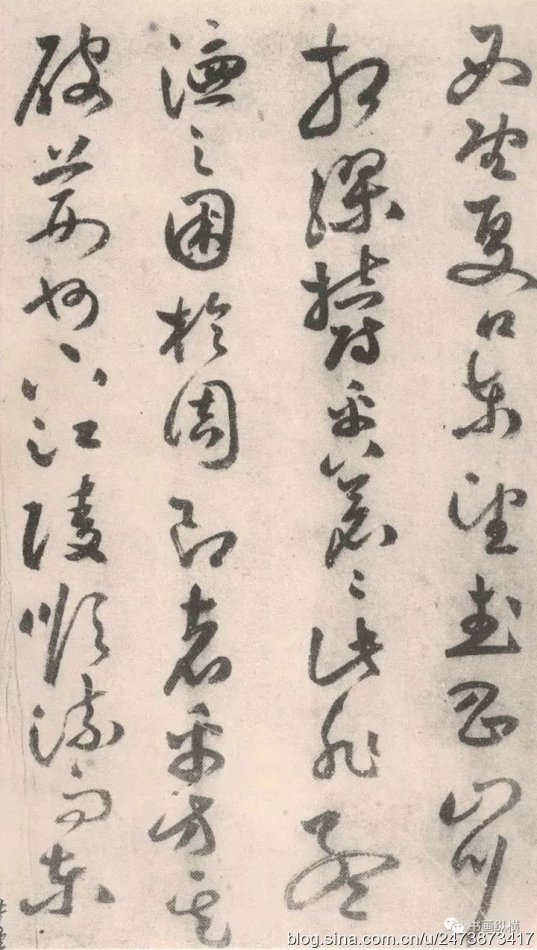 西望夏口東望武昌山川
相繆鬱乎蒼〻此非孟
德之困於周郎者乎方其
破荊州下江陵順流而東
书画纵横
blog.sina.com.cn/u/2473873417